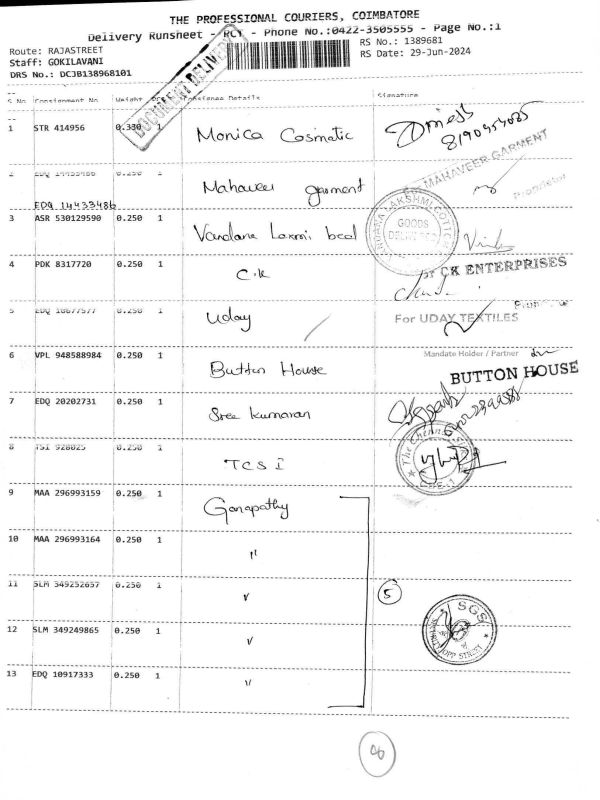 THE PROFESSIONAL COURIERS, COIMBATORE
Delivery Runsheet - RCT - Phone No.:0422-3505555 - Page No.:1
Route: RAJASTREET
RS No.: 1389681
Staff: GOKILAVANI
RS Date: 29-Jun-2024
DRS No.: DCJB138968101
DOCUMENT DELIVERY
S No Consignment No Weight Consignee Details Signature
1 STR 414956 0.330 1 Monica Cosmatic
8190454085
2 EDQ 14433486 0.250 1 Mahaveer garment
MAHAVEER GARMENT
Proprietor
EDQ 14433486
3 ASR 530129590 0.250 1 Vandana Laxmi bead
GOODS
4 PDK 8317720 0.250 1 C.K
For CK ENTERPRISES
5 EDQ 10677577 0.250 1 Uday
For UDAY TEXTILES
6 VPL 948588984 0.250 1 Button House
Mandate Holder / Partner
BUTTON HOUSE
7 EDQ 20202731 0.250 1 Sree Kumaran
8 TSI 928025 0.250 1 TCSI
The Chennai
9 MAA 296993159 0.250 1 Ganapathy
10 MAA 296993164 0.250 1 "
11 SLM 349252657 0.250 1 "
5
12 SLM 349249865 0.250 1 "
SGS
OPP STREET
13 EDQ 10917333 0.250 1 "